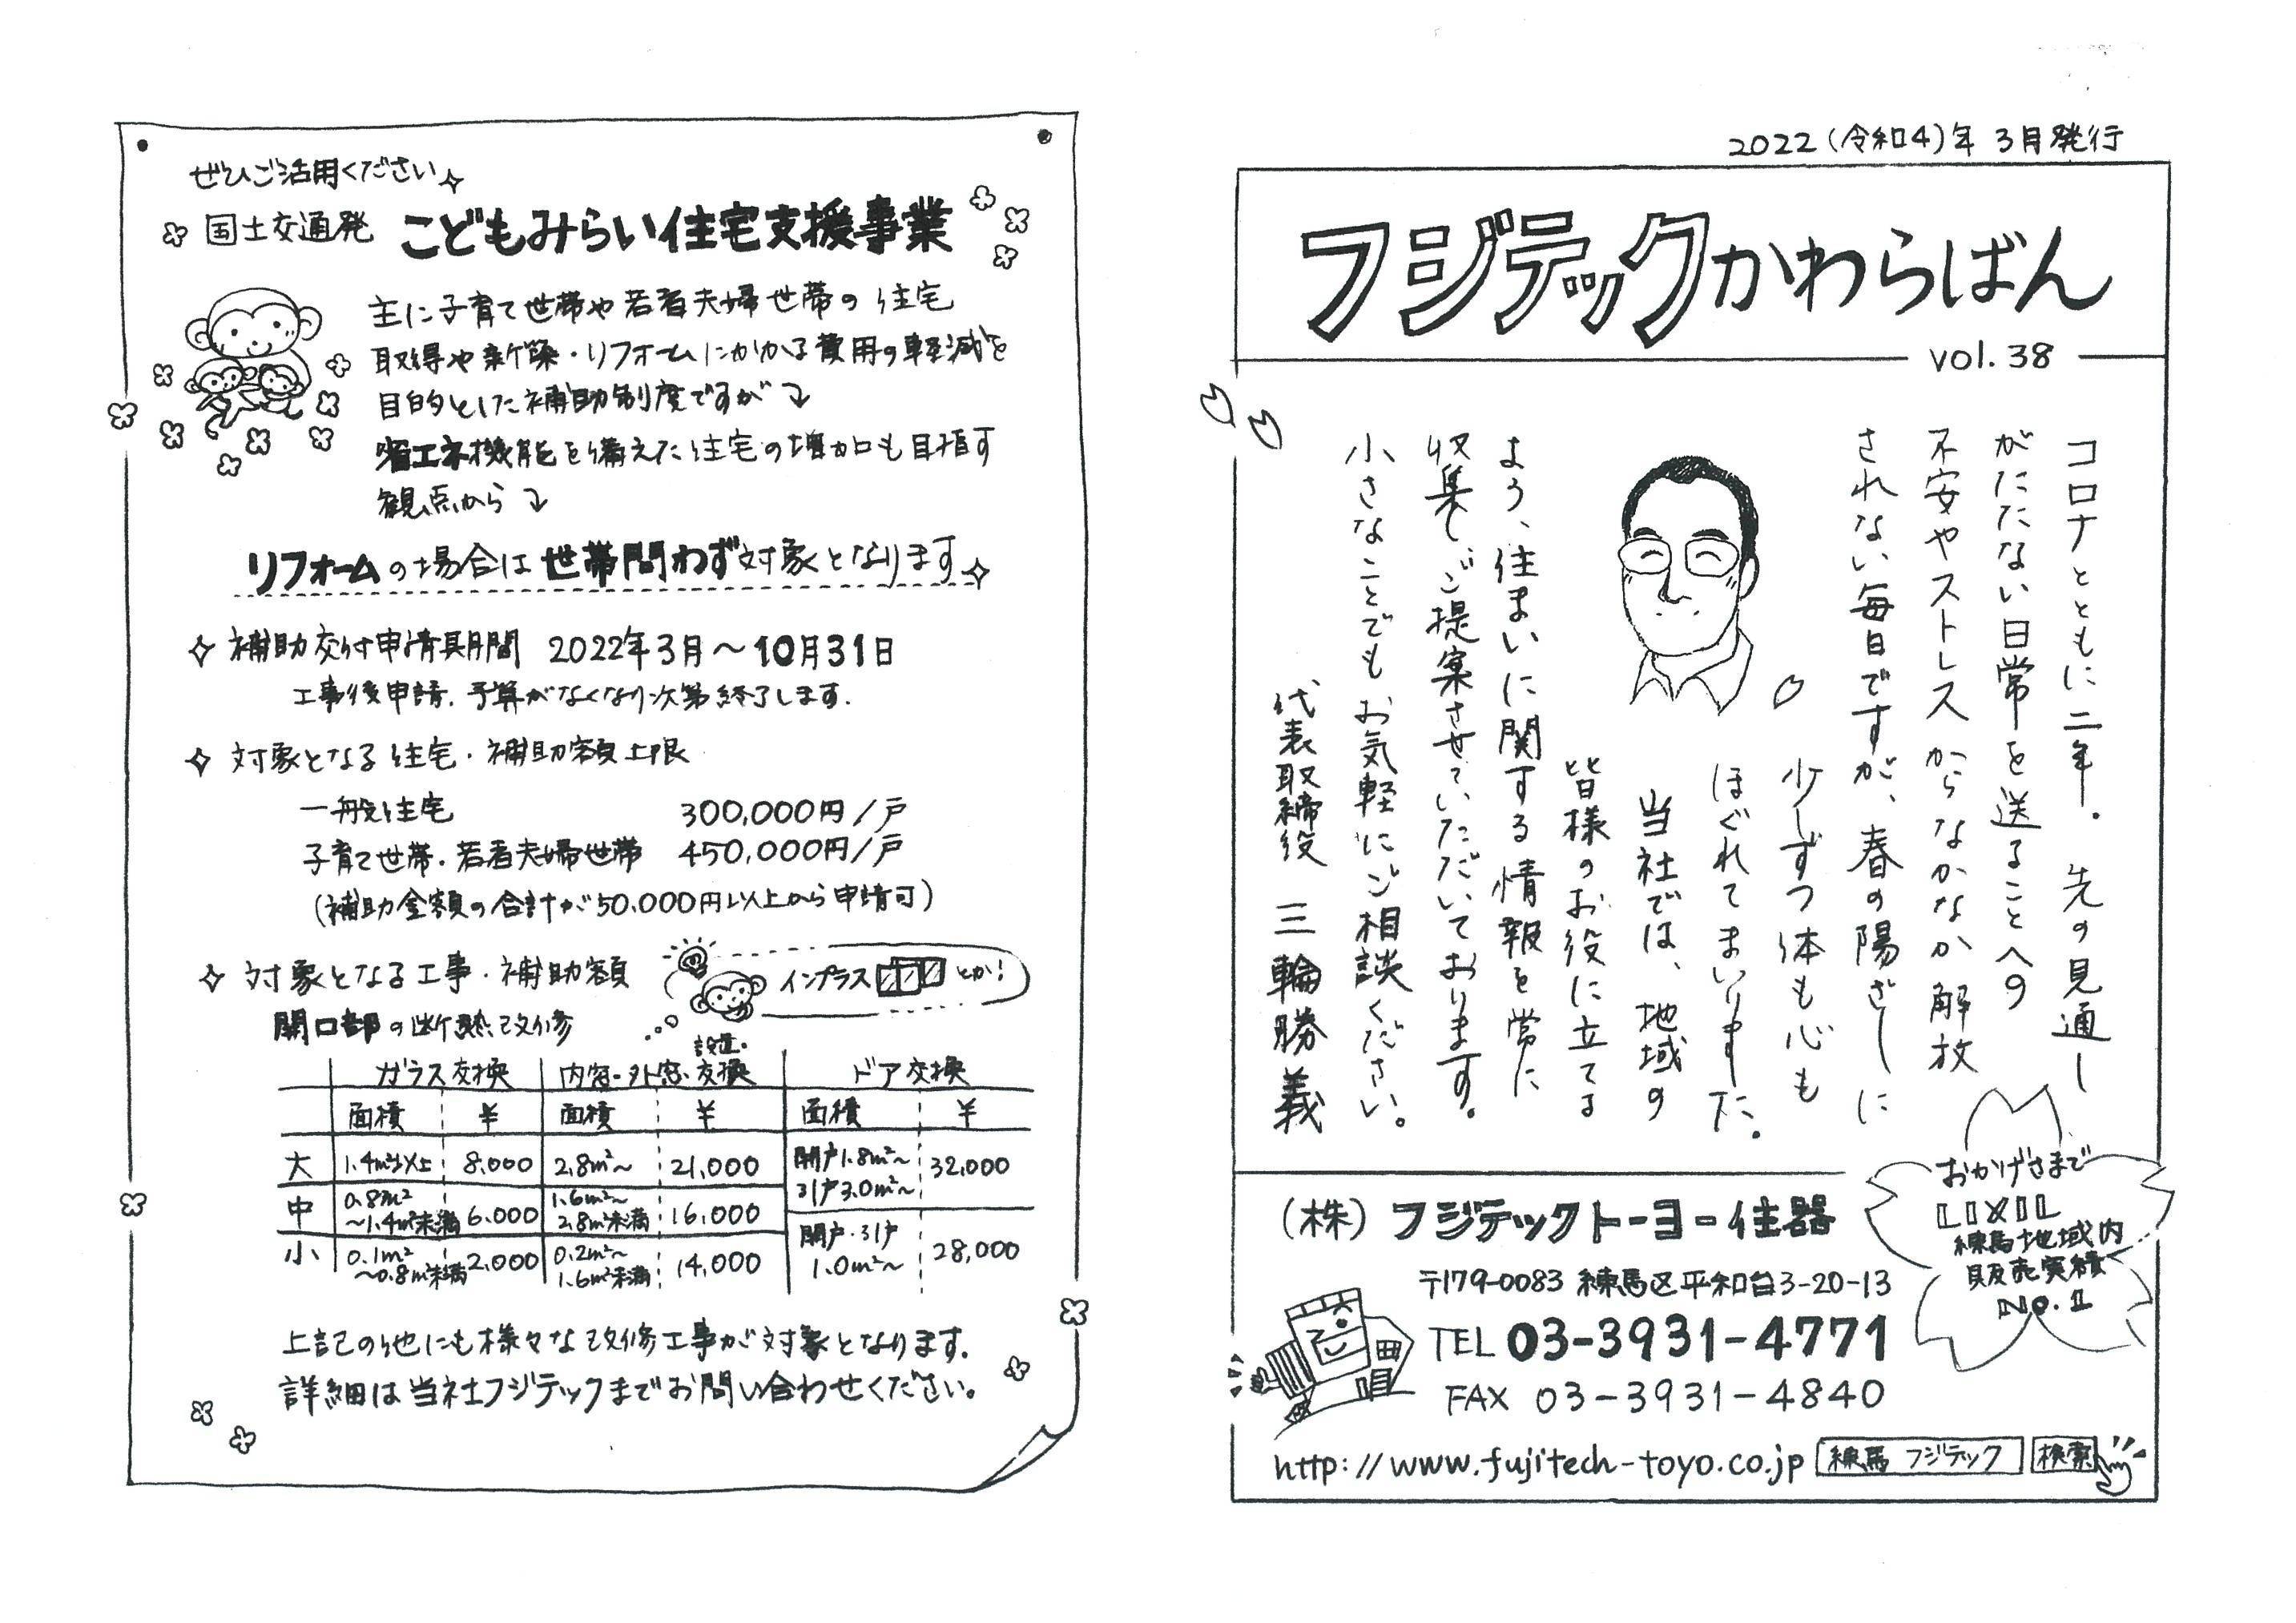 2022(令和4)年 3月発行
フジテックかわらばん
vol.38
コロナとともに二年。先の見通し
がたたない日常を送ることへの
不安やストレスからなかなか解放
されない毎日ですが、春の陽ざしに
少しずつ体も心も
ほぐれてまいりました。
当社では、地域の
皆様のお役に立てる
よう、住まいに関する情報を常に
収集しご提案させていただいております。
小さなことでもお気軽にご相談ください。
代表取締役 三輪勝義
おかげさまで
LIXIL
練馬地域内
販売実績
No.1
(株)フジテックトーヨー住器
〒179-0083 練馬区平和台3-20-13
TEL 03-3931-4771
FAX 03-3931-4840
http://www.fujitech-toyo.co.jp 練馬 フジテック 検索
ぜひご活用ください
国土交通発 こどもみらい住宅支援事業
主に子育て世帯や若者夫婦世帯の住宅
取得や新築・リフォームにかかる費用の軽減を
目的とした補助制度ですが
省エネ機能を備えた住宅の増加も目指す
観点から
リフォームの場合は世帯問わず対象となります
補助交付申請期間 2022年3月〜10月31日
工事後申請.予算がなくなり次第終了します.
対象となる住宅・補助額上限
一般住宅 300,000円/戸
子育て世帯・若者夫婦世帯 450,000円/戸
(補助金額の合計が50,000円以上から申請可)
対象となる工事・補助額
インプラスとか!
開口部の断熱改修
設置・
ガラス交換 内窓・外窓交換 ドア交換
面積 ¥ 面積 ¥ 面積 ¥
大 1.4m²以上 8,000 2.8m²〜 21,000 開戸1.8m²〜 引戸3.0m²〜 32,000
中 0.8m²〜1.4m²未満 6,000 1.6m²〜2.8m²未満 16,000
小 0.1m²〜0.8m²未満 2,000 0.2m²〜1.6m²未満 14,000 開戸・引戸 1.0m²〜 28,000
上記の他にも様々な改修工事が対象となります.
詳細は当社フジテックまでお問い合わせください。